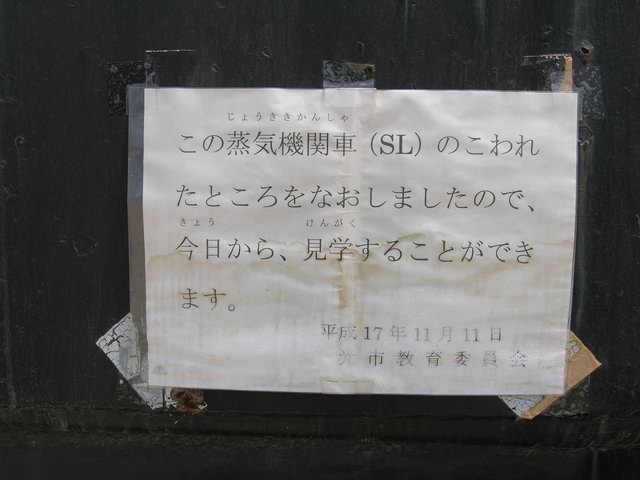 じょうききかんしゃ
この蒸気機関車（SL）のこわれ
たところをなおしましたので、
きょう けんがく
今日から、見学することができ
ます。
平成17年11月11日
光市教育委員会